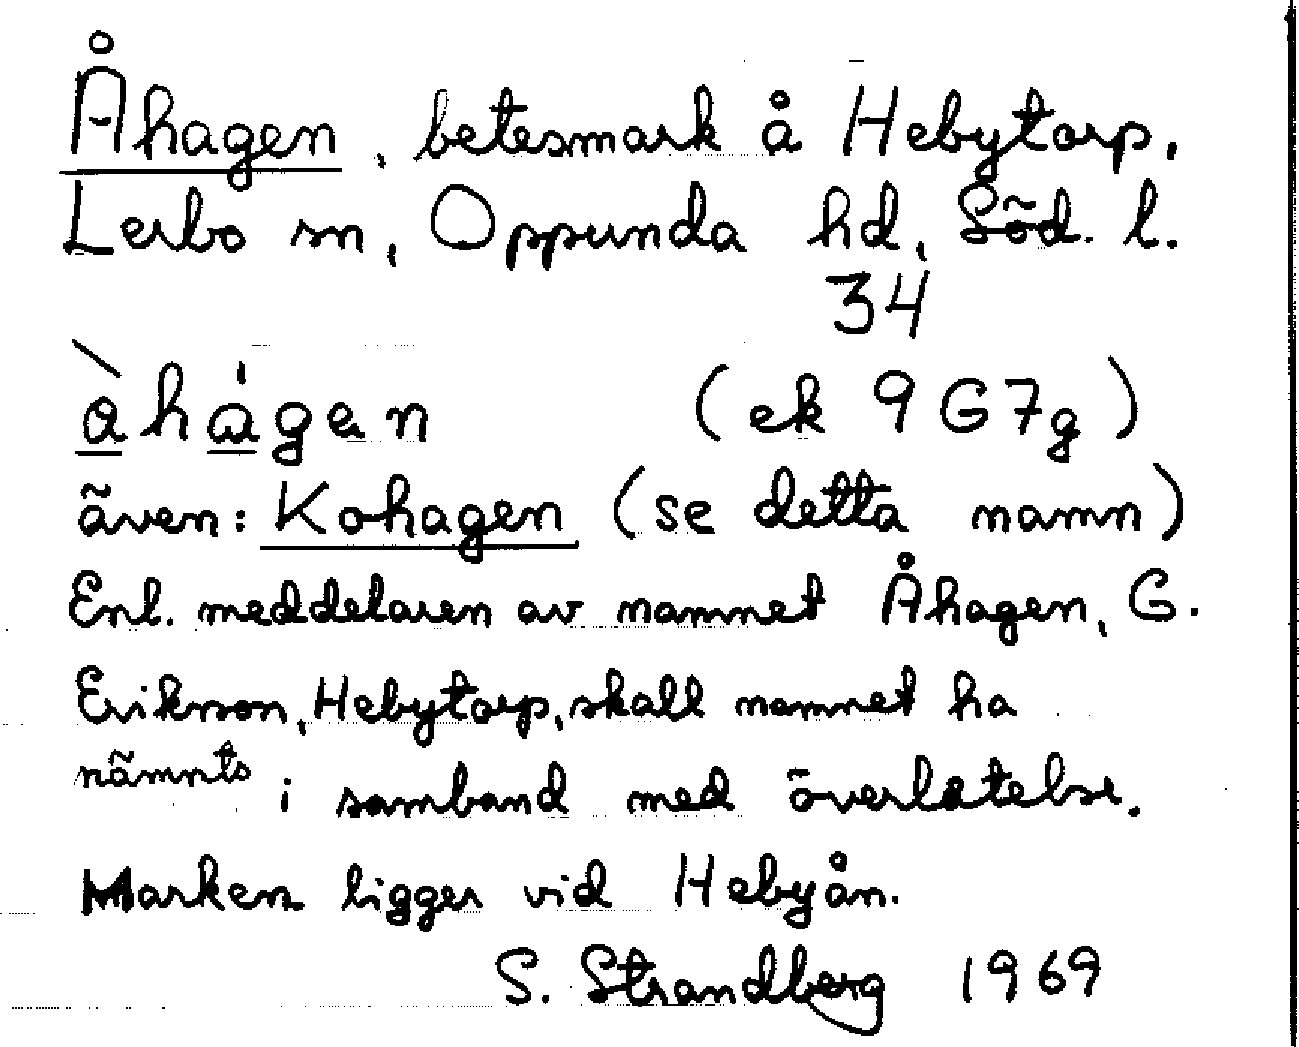 Åhagen, betesmark å Hebytorp,
Lerbo sn, Oppunda hd, Söd. l.
34
àhágen (ek 9G7g)
även: Kohagen (se detta namn)
Enl. meddelaren av namnet Åhagen, G.
Erikson, Hebytorp, skall namnet ha
nämnts i samband med överlåtelse.
Marken ligger vid Hebyån.
S. Strandberg 1969